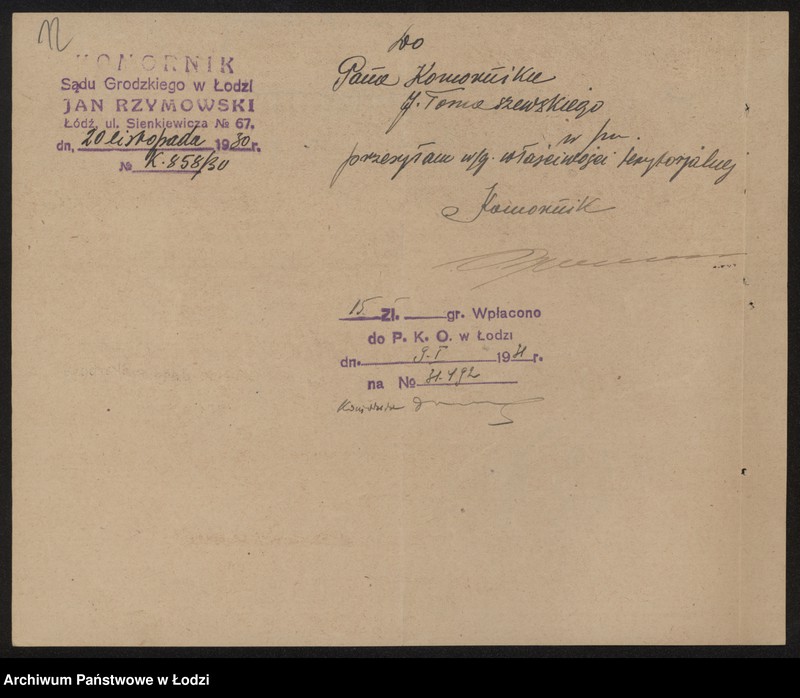 KOMORNIK
Sądu Grodzkiego w Łodzi
JAN RZYMOWSKI
Łódź, ul. Sienkiewicza № 67.
dn, 20 listopada 1930r.
№ K. 858/30
Do
Pana Komornika
J. Tomaszewskiego
w m.
przesyłam wg. właściwości terytorjalnej
Komornik
15 Zł. gr. Wpłacono
do P. K. O. w Łodzi
dn. 9. I 1931 r.
na № 31.192
Archiwum Państwowe w Łodzi